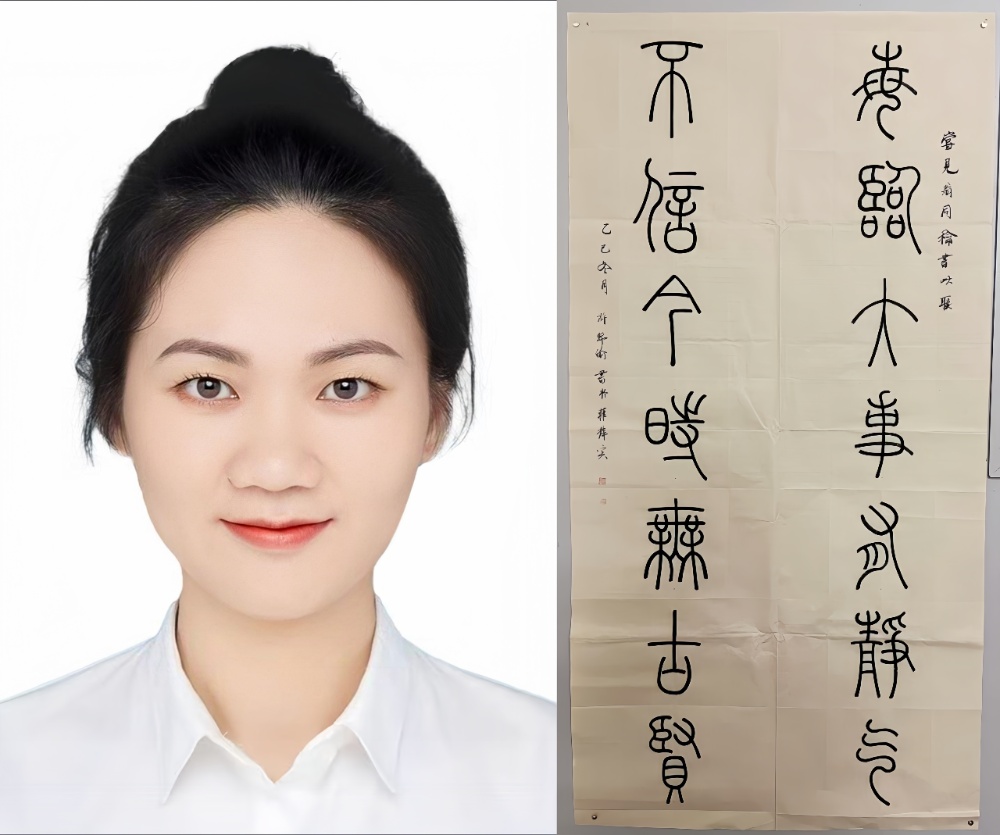 嘗見翁同龢書此聯
每臨大事有靜气
不信今時無古賢
乙巳冬月 書於